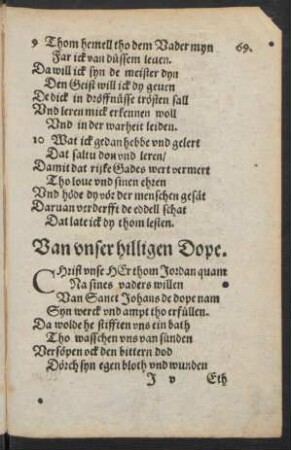 9 Thom hemell tho dem Vader myn
69.
Far ick van düssem leuen.
Da will ick syn de meister dyn
Den Geist will ick dy geuen
De dick in dröffnüsse trösten sall
Vnd leren mick erkennen woll
Vnd in der warheit leiden.
10 Wat ick gedan hebbe vnd gelert
Dat saltu don vnd leren/
Damit dat rijke Gades wert vermert
Tho loue vnd sinen ehren
Vnd höde dy vör der menschen gesät
Daruan verderfft de eddell schat
Dat late ick dy thom lesten.
Van vnser hilligen Dope.
CHrist vnse HEr thom Jordan quam
Na sines vaders willen
Van Sanct Johans de dope nam
Syn werck vnd ampt tho erfüllen.
Da wolde he stifften vns ein bath
Tho wasschen vns van sünden
Versöpen ock den bittern dod
Dörch syn egen bloth vnd wunden
J v Eth